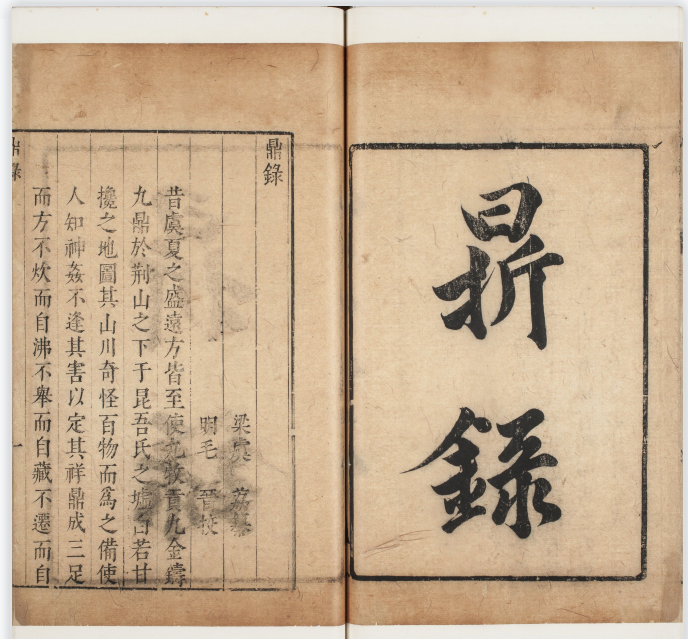 鼎
錄
鼎錄
梁虞 荔纂
明毛 晉校
昔虞夏之盛遠方皆至使九牧貢九金鑄
九鼎於荆山之下于昆吾氏之墟白若甘
攙之地圖其山川奇怪百物而爲之備使
人知神姦不逢其害以定其祥鼎成三足
而方不炊而自沸不舉而自藏不遷而自
鼎錄
一